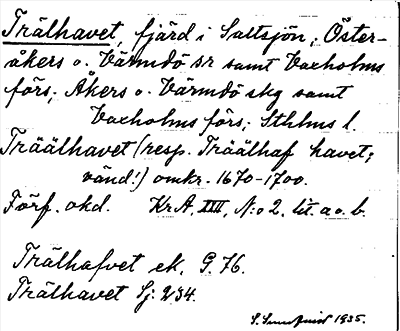 Trälhavet, fjärd i Saltsjön; Öster-
åkers o. Värmdö sr samt Vaxholms
förs; Åkers o. Värmdö skg samt
Vaxholms förs; Sthlms l.
Träälhavet (resp. Träälhaf havet;
vänd!) omkr. 1670-1700.
Förf. okd. KrA, XIII, N:o 2, lit. a o. b.
Trälhafvet ek. G. 76.
Trälhavet Sj: 234.
S. 1935.